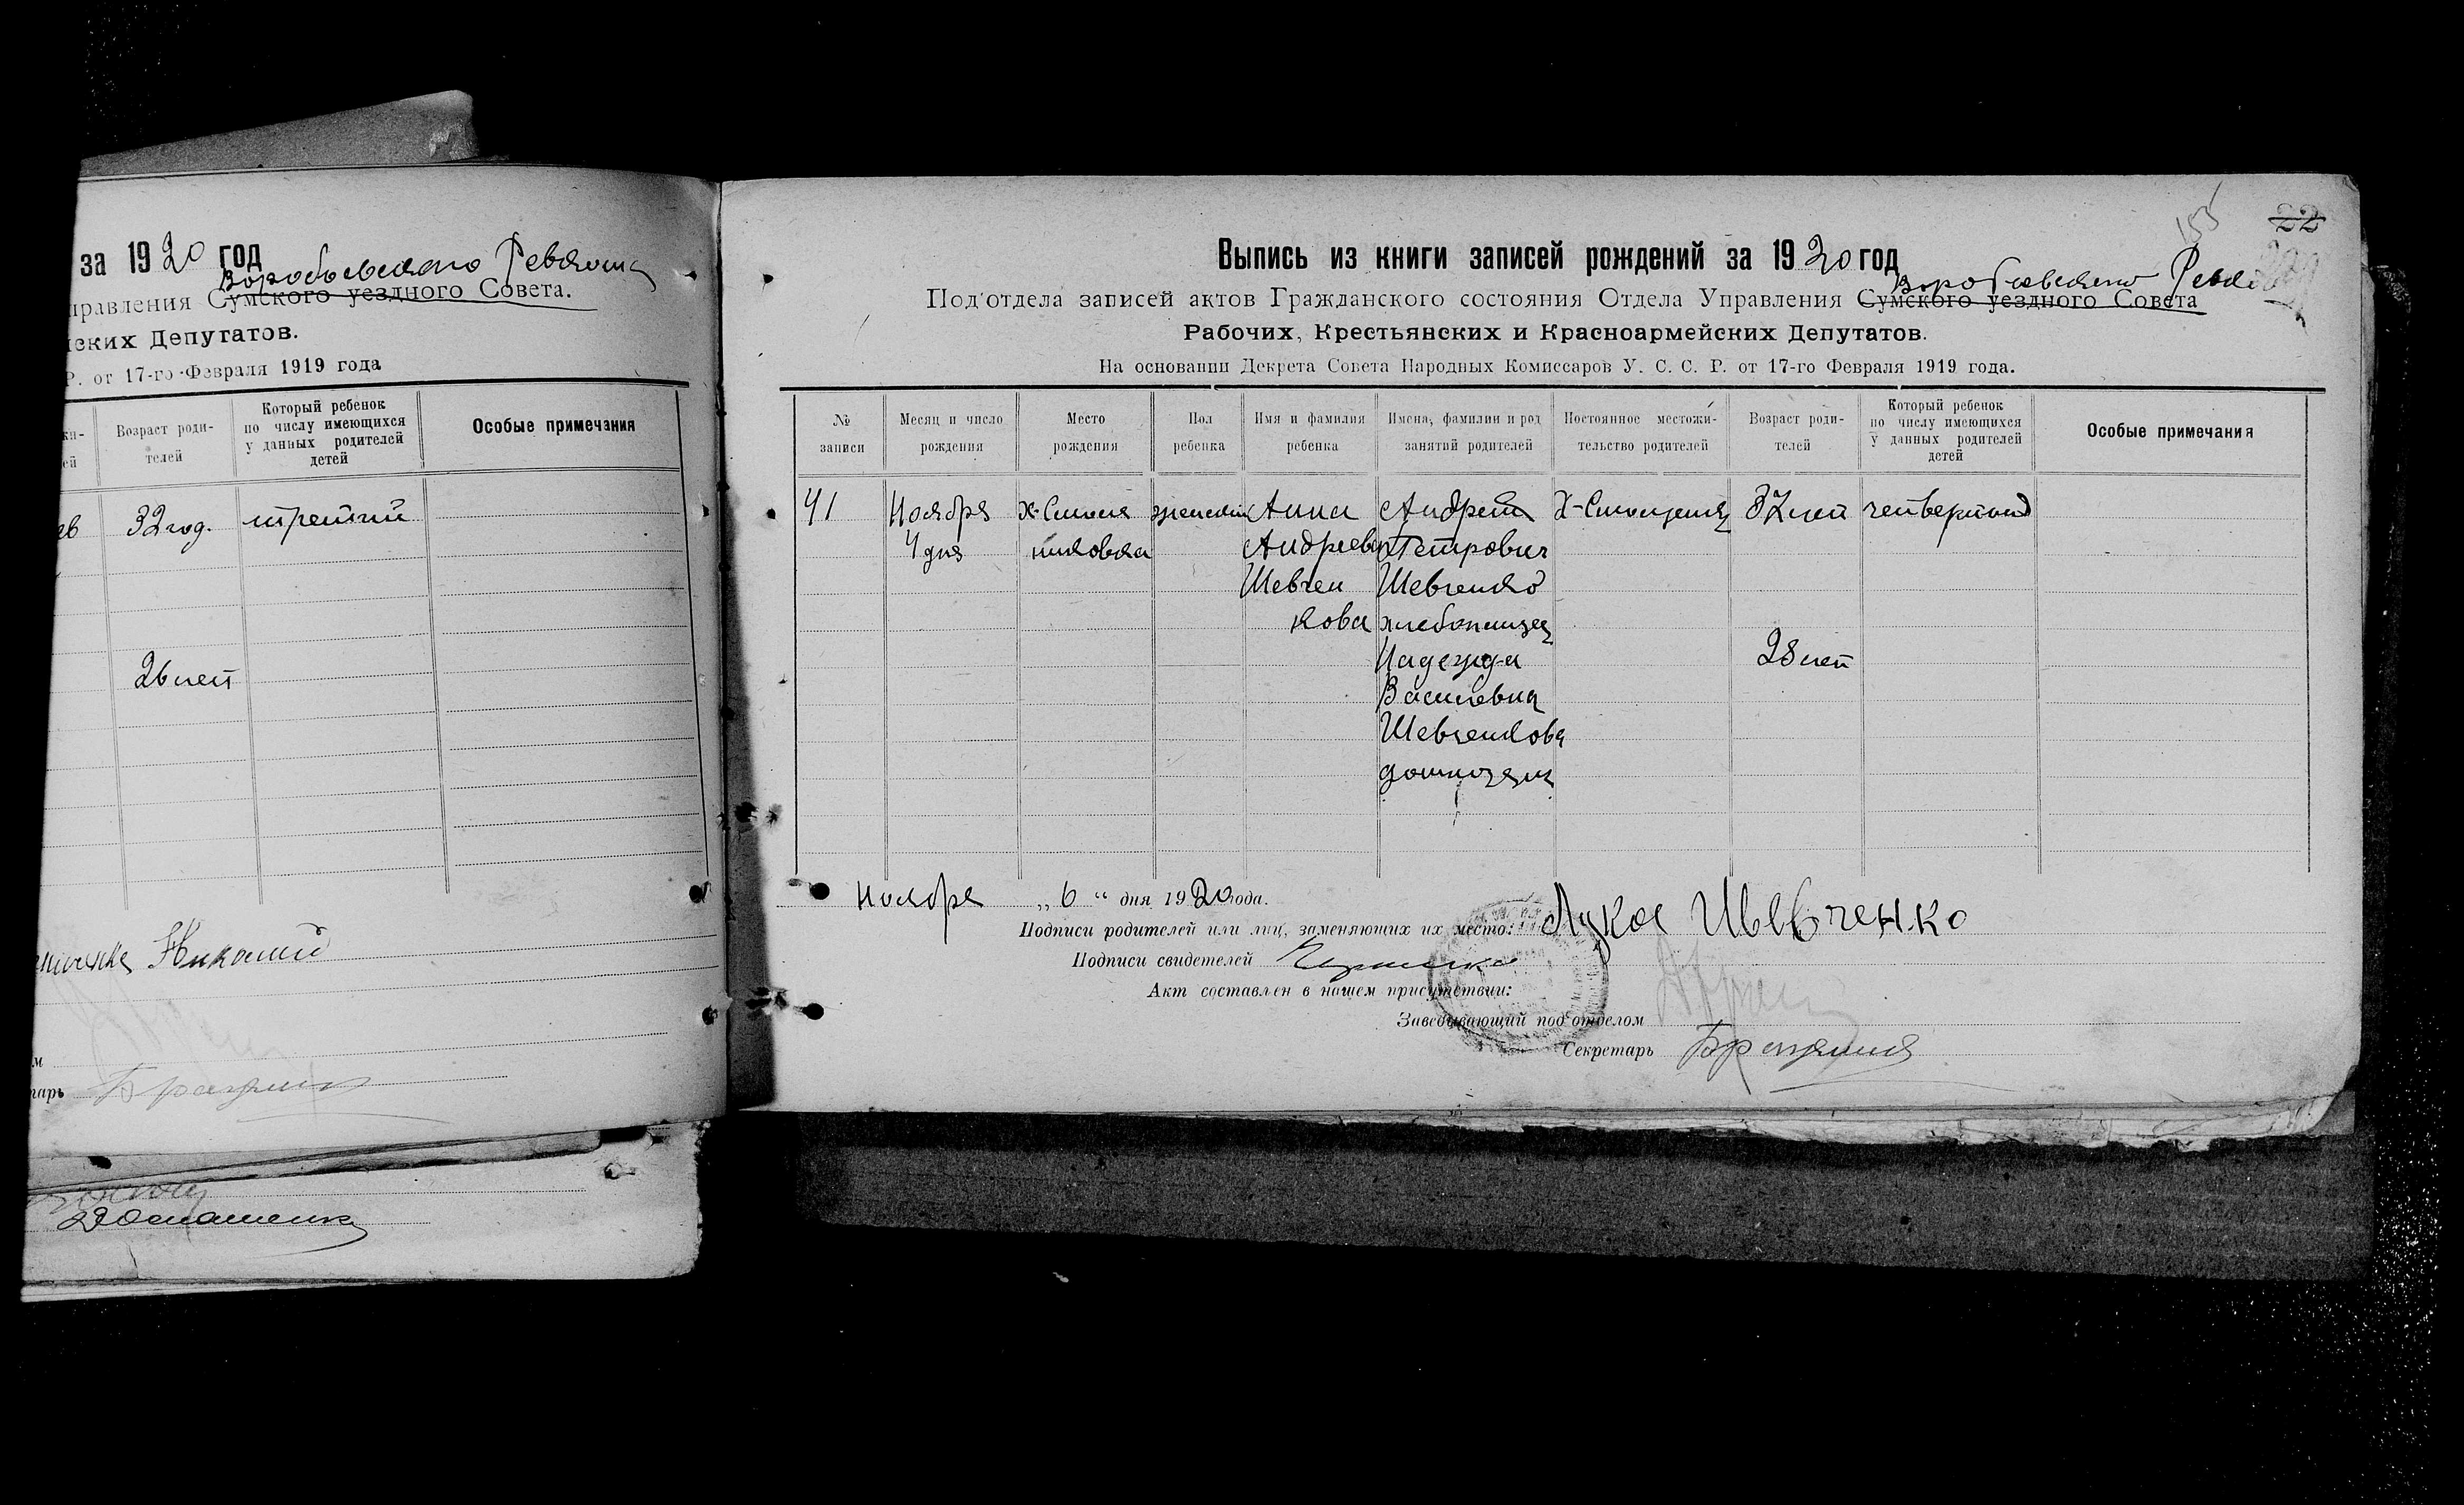 за 1920 год
Воробьевского Ревкома
правления Сумского уездного Совета.
ских Депутатов.
Р. от 17-го Февраля 1919 года
Возраст роди-
телей
Который ребенок
по числу имеющихся
у данных родителей
детей
Особые примечания
32 год. третий
26 лет
Николай
тарь
155
22
Выпись из книги записей рождений за 1920 год
Воробьевского
Под'отдела записей актов Гражданского состояния Отдела Управления Сумского уездного Совета
Рабочих, Крестьянских и Красноармейских Депутатов.
На основании Декрета Совета Народных Комиссаров У. С. С. Р. от 17-го Февраля 1919 года.
№
записи
Месяц и число
рождения
Место
рождения
Пол
ребенка
Имя и фамилия
ребенка
Имена, фамилии и род
занятий родителей
Постоянное местожи-
тельство родителей
Возраст роди-
телей
Который ребенок
по числу имеющихся
у данных родителей
детей
Особые примечания
41
Ноября
4 дня
женский
Анна
Андреева
Шевчен
кова
Андрей
Петрович
Шевченко
хлебопашец
Надежда
Василевна
Шевченкова
32 лет
28 лет
четвертой
Ноября „6“ дня 1920 года.
Подписи родителей или лиц, заменяющих их место: Лука Шевченко
Подписи свидетелей
Акт составлен в нашем присутствии:
Заведывающий под'отделом
Секретарь